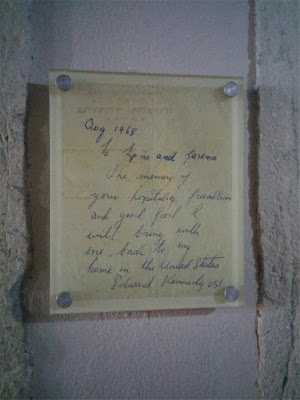 Aug 1968
To Spiro and
The memory of
your hospitality, friendliness
and good food I
will bring with
me, back to, my
home in the United States
Edward Kennedy